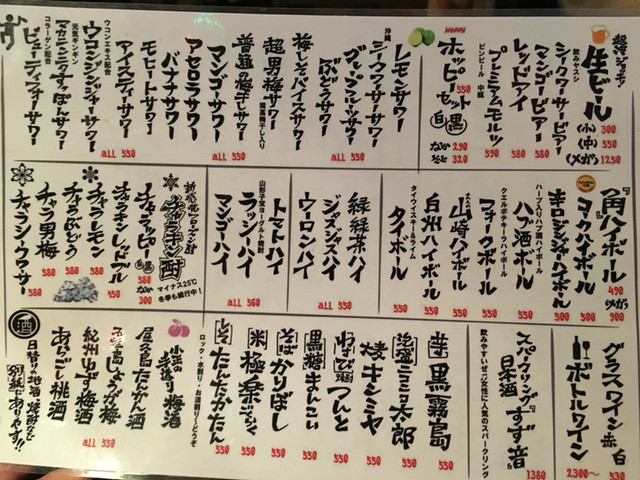 超冷ジョッキ!
生ビール
300
(小)
(中)
550
(メガ)
1250
飲みヤスシ
シークワーサービアー
580
マンゴービアー
580
レッドアイ
580
プレミアムモルツ
590
ビンビール 中瓶
HOPPY
ホッピーセット
白 黒
550
なか 290
そと 320
レモンサワー
沖縄
シークワーサーサワー
グレープフルーツサワー
梅しそパイスサワー
all 550
超男梅サワー
普通の梅干しサワー
マンゴーサワー
アセロラサワー
バナナサワー
all 550
モヒートサワー
アイスティーサワー
ウコンエキス配合
ウコンジンジャーサワー
元気ギンギン
コラーゲン配合
ビューティーサワー
all 550
角ハイボール
490
メガ 900
コークハイボール
500
ジンジャーハイボール
500
ハーブ入りハブ酒ハイボール
ハブ酒ボール
550
ウエルポテキーラハイボール
フォークボール
550
山崎ハイボール
白州ハイボール
タイウィスキー&ライム
タイボール
550
緑緑茶ハイ
ジャスジャスハイ
ウーロンハイ
all 550
トマトハイ
山形子宝ヨーグルト焼酎
ラッシーハイ
マンゴーハイ
all 560
マイナス25℃
冬季も続行中!
チャラッピー
白 黒
580
なか 300
チャラキンレッドブル
チャラレモン
580
チャラぶどう
580
チャラ男梅
580
チャラシークワーサー
580
グラスワイン 赤 白
530
ボトルワイン
2300〜
スパークリング
日本酒
すず音
1380
飲みやすいぜっ!女性に人気のスパークリング
芋
黒霧島
550
泡盛
三三太郎
550
麦
キシミヤ
550
わさび
つんと
550
黒糖
まんこい
550
そば
かりばし
550
米
極楽
550
しそ
たんたかたん
550
ロック・水割り・お湯割り〜どうぞ
小正の
梅酒
屋久島たんかん酒
屋久島しょうが梅酒
紀州ゆず梅酒
あらごし桃酒
all 550
酒
日替りの地酒
焼酎など
別紙にありヤす!!